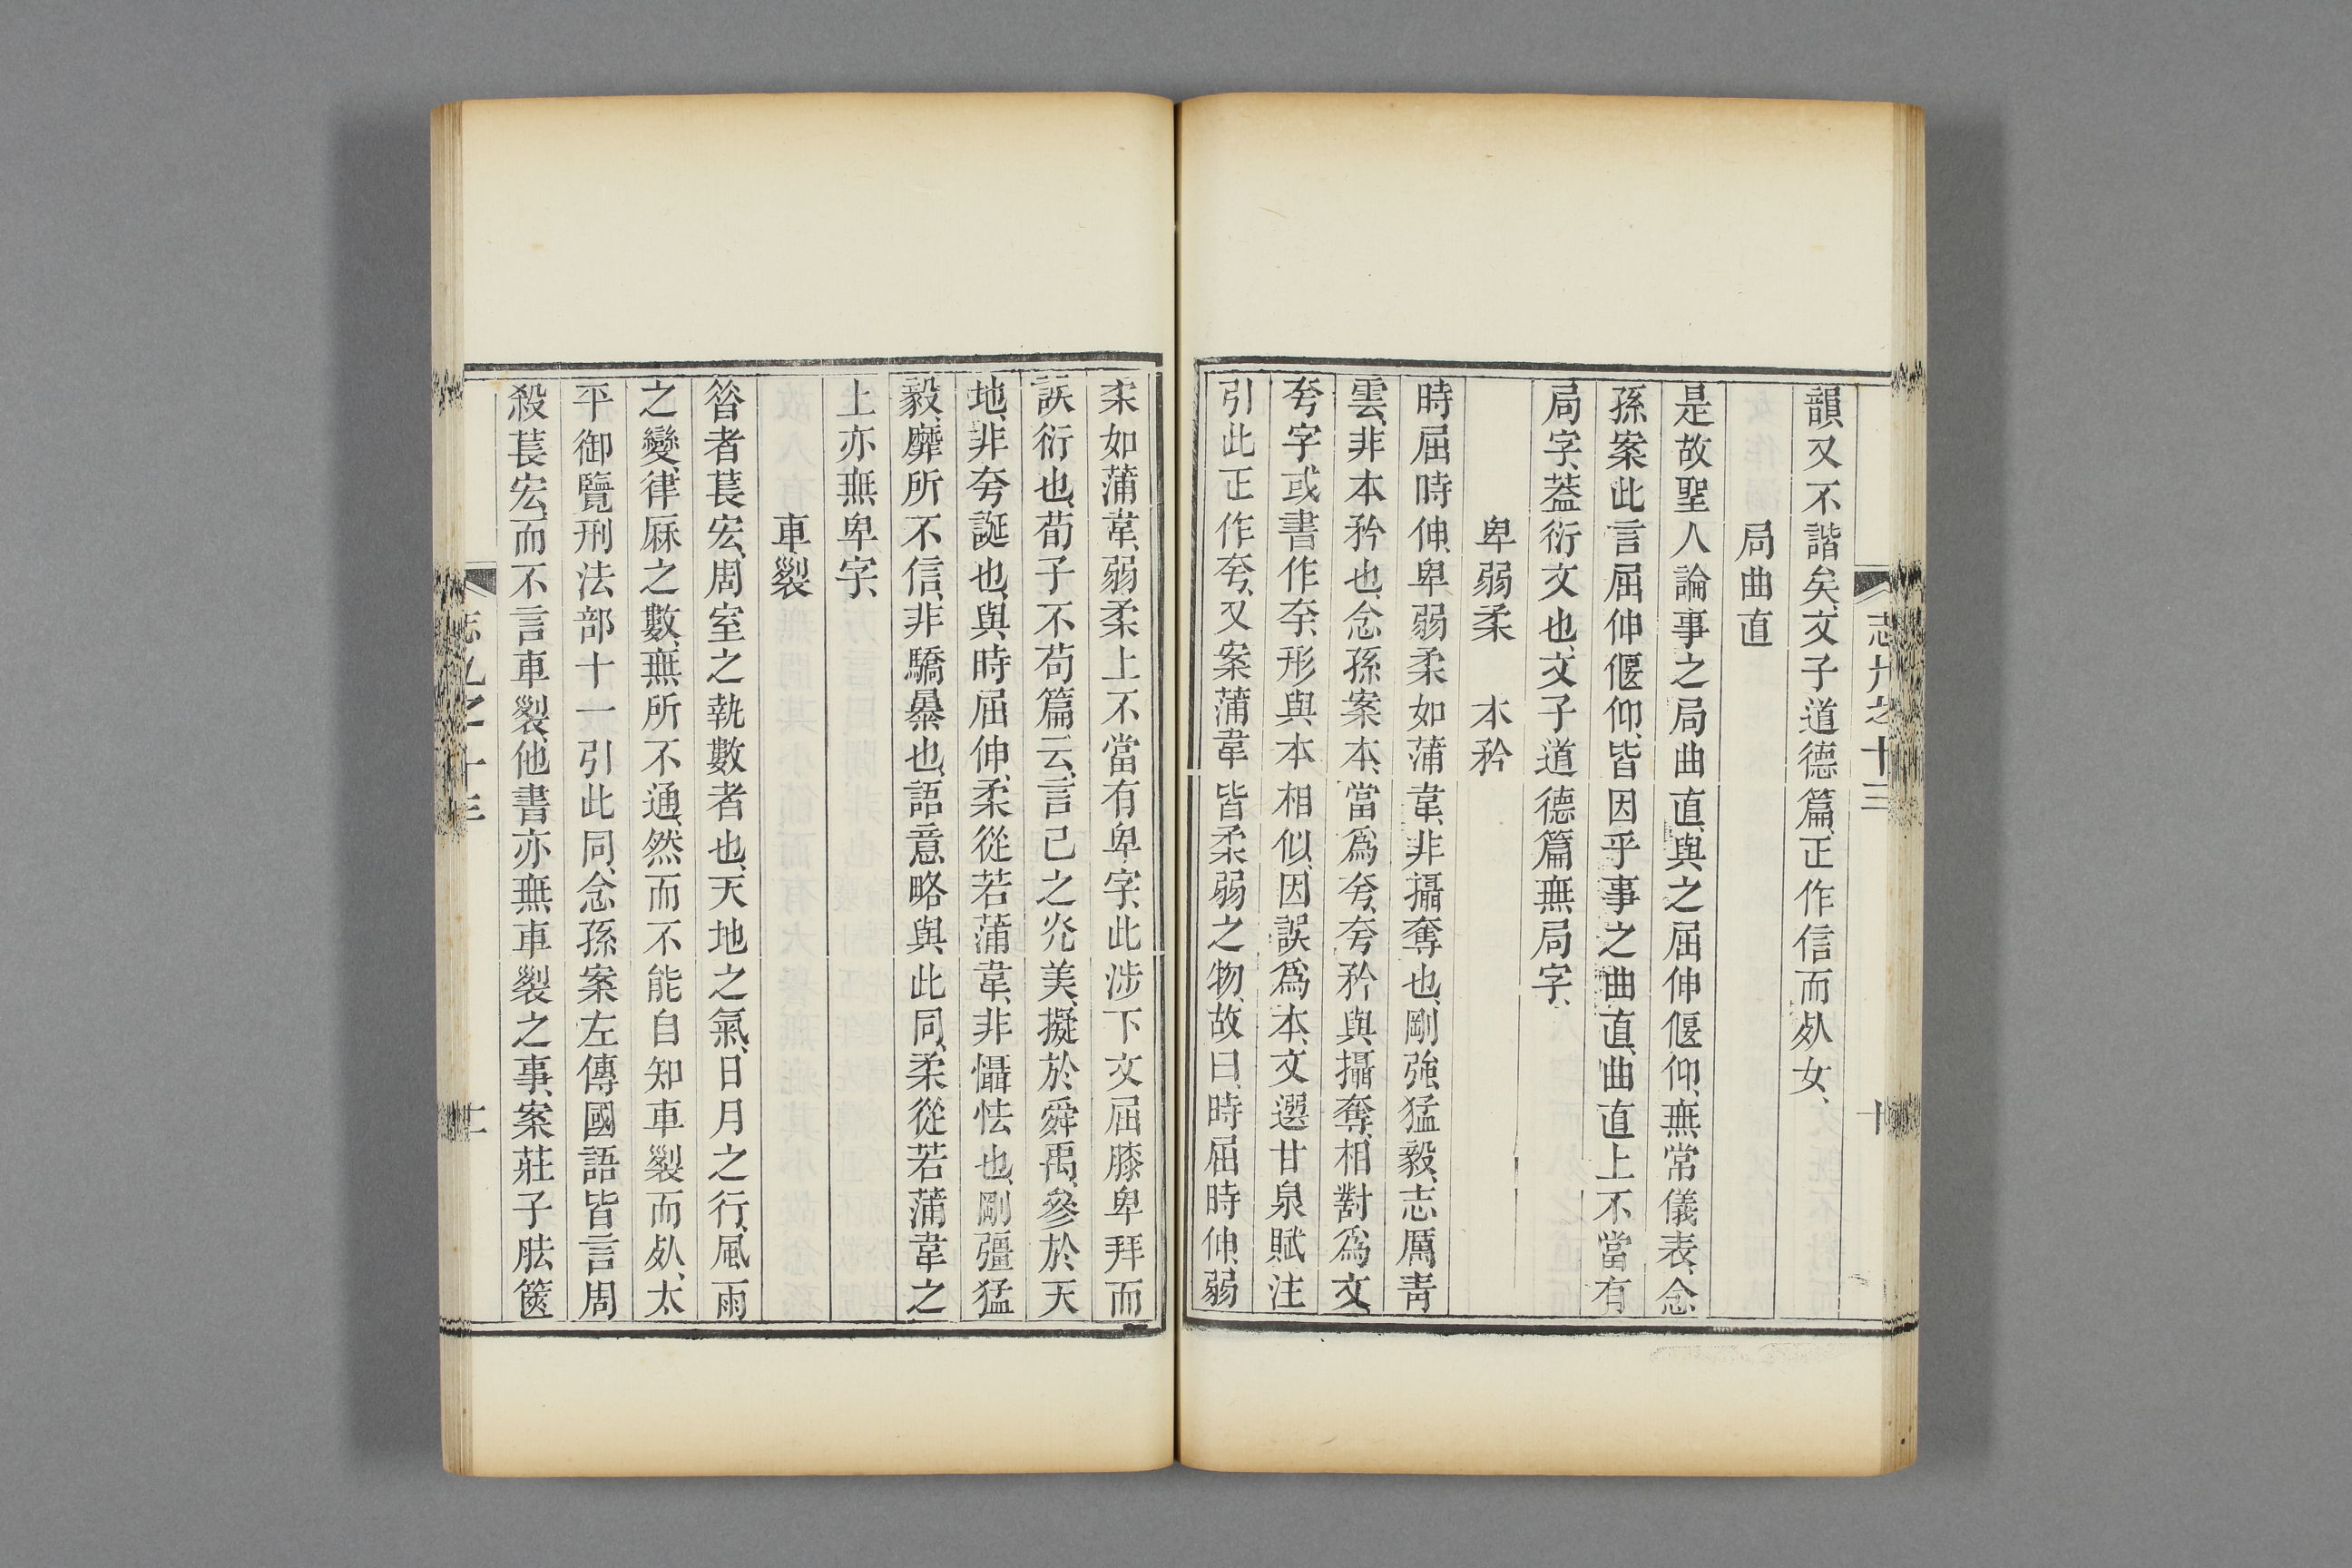 志九之十三
十
韻又不諧矣、文子道德篇、正作信而死女、
局曲直
是故聖人論事之局曲直、與之屈伸偃仰、無常儀表、念
孫案此言屈伸偃仰、皆因乎事之曲直、曲直上不當有
局字、葢衍文也、文子道德篇無局字、
卑弱柔　本矜
時屈時伸、卑弱柔如蒲韋、非攝奪也、剛強猛毅、志厲靑
雲、非本矜也、念孫案本、當爲夸、夸矜與攝奪、相對爲文
夸字或書作夲、形與本相似、因誤爲本、文選甘泉賦注
引此正作夸、又案蒲韋皆柔弱之物、故曰、時屈時伸、弱
柔如蒲韋、弱柔上不當有卑字、此涉下文屈膝卑拜而
誤衍也、荀子不苟篇云、言己之光美、擬於舜禹、參於天
地、非夸誕也、與時屈伸、柔從若蒲韋、非懾怯也、剛彊猛
毅、靡所不信、非驕暴也、語意略與此同、柔從若蒲韋之
上亦無卑字、
車裂
昝者萇宏、周室之執數者也、天地之氣、日月之行、風雨
之變、律厤之數、無所不通、然而不能自知車裂而死、太
平御覽刑法部十一引此同、念孫案左傳國語皆言周
殺萇宏、而不言車裂、他書亦無車裂之事、案莊子胠篋
志九之十三